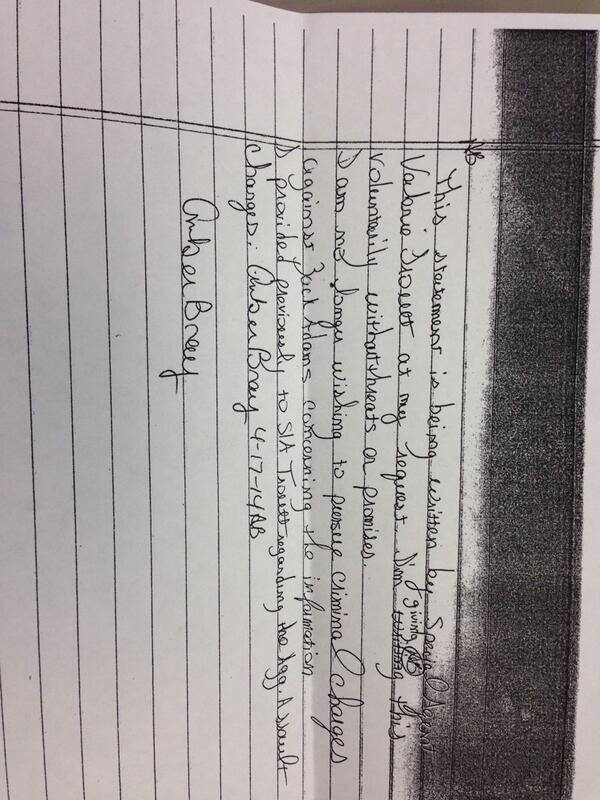 AB This statement is being written by Special Agent
Valerie Troutt at my request. I'm giving AB writing this
voluntarily without threats or promises.
I am no longer wishing to pursue criminal charges
against Zach Adams concerning the information
I provided previously to S/A Troutt regarding the Agg. Assault
charges. Amber Bray 4-17-14 AB
Amber Bray